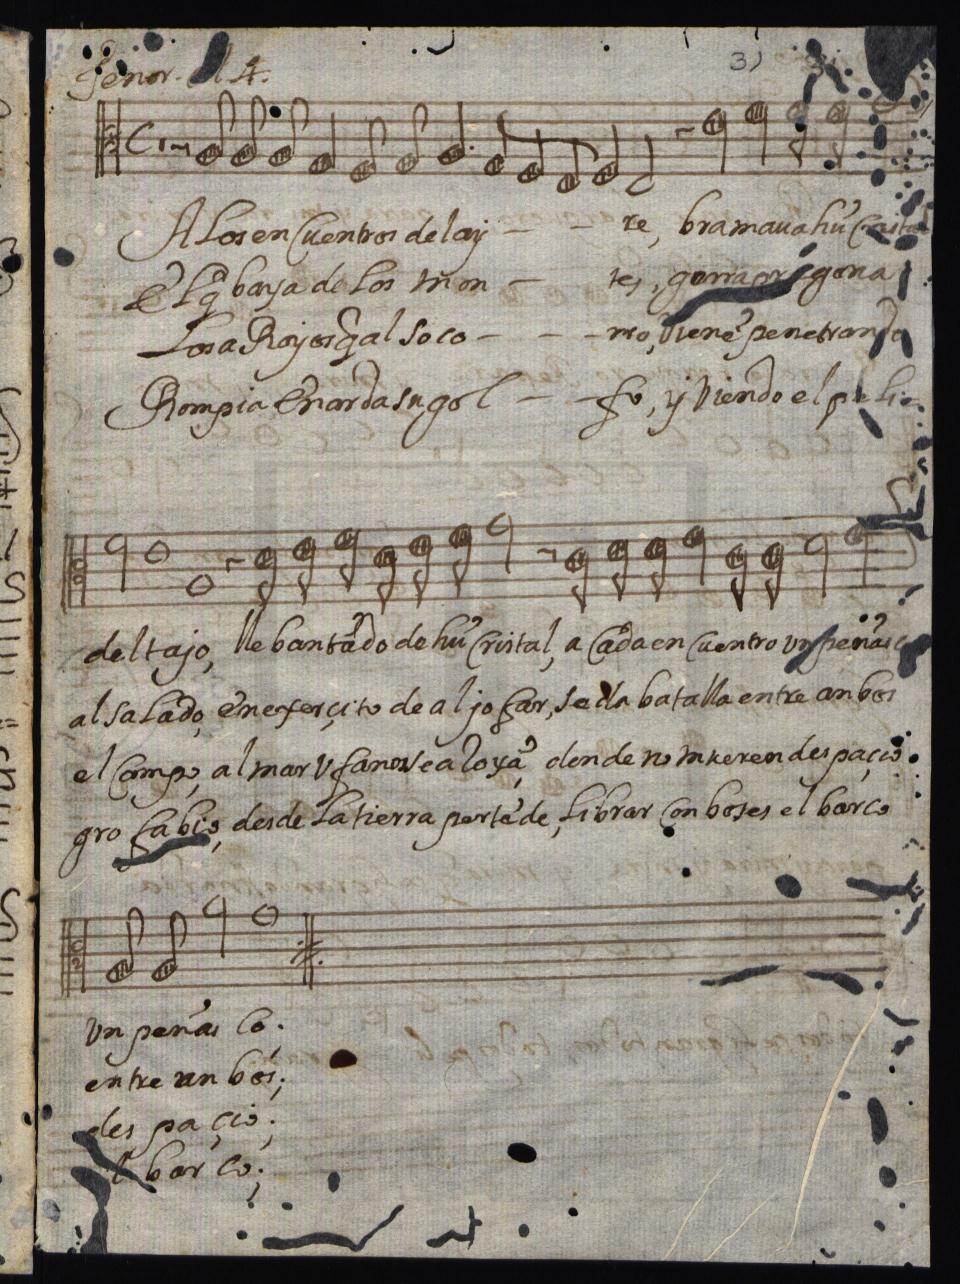 Tenor. A 4.
3)
A Los en Cuentros del ay - - re, bramaua hũ Cristal
baja de Los mon - tes, gona
Los a Rojos q̃ al Soco - - - rro, Viene penetrando
Rompia Enarda su gol - - fo, y Viendo el peli-
del tajo, lle bantãdo de hũ Cristal, a Cada en Cuentro Vn peñasco
al Salado, en exerçito de al jofar, se da batalla entre anbos
el Campo, al mar Vfano donde no mueren des paçio
gro fabio, desde La tierra parte de, Librar Con boses el barco
Vn peñas Co;
entre an bos;
des pa çio;
el bar Co;